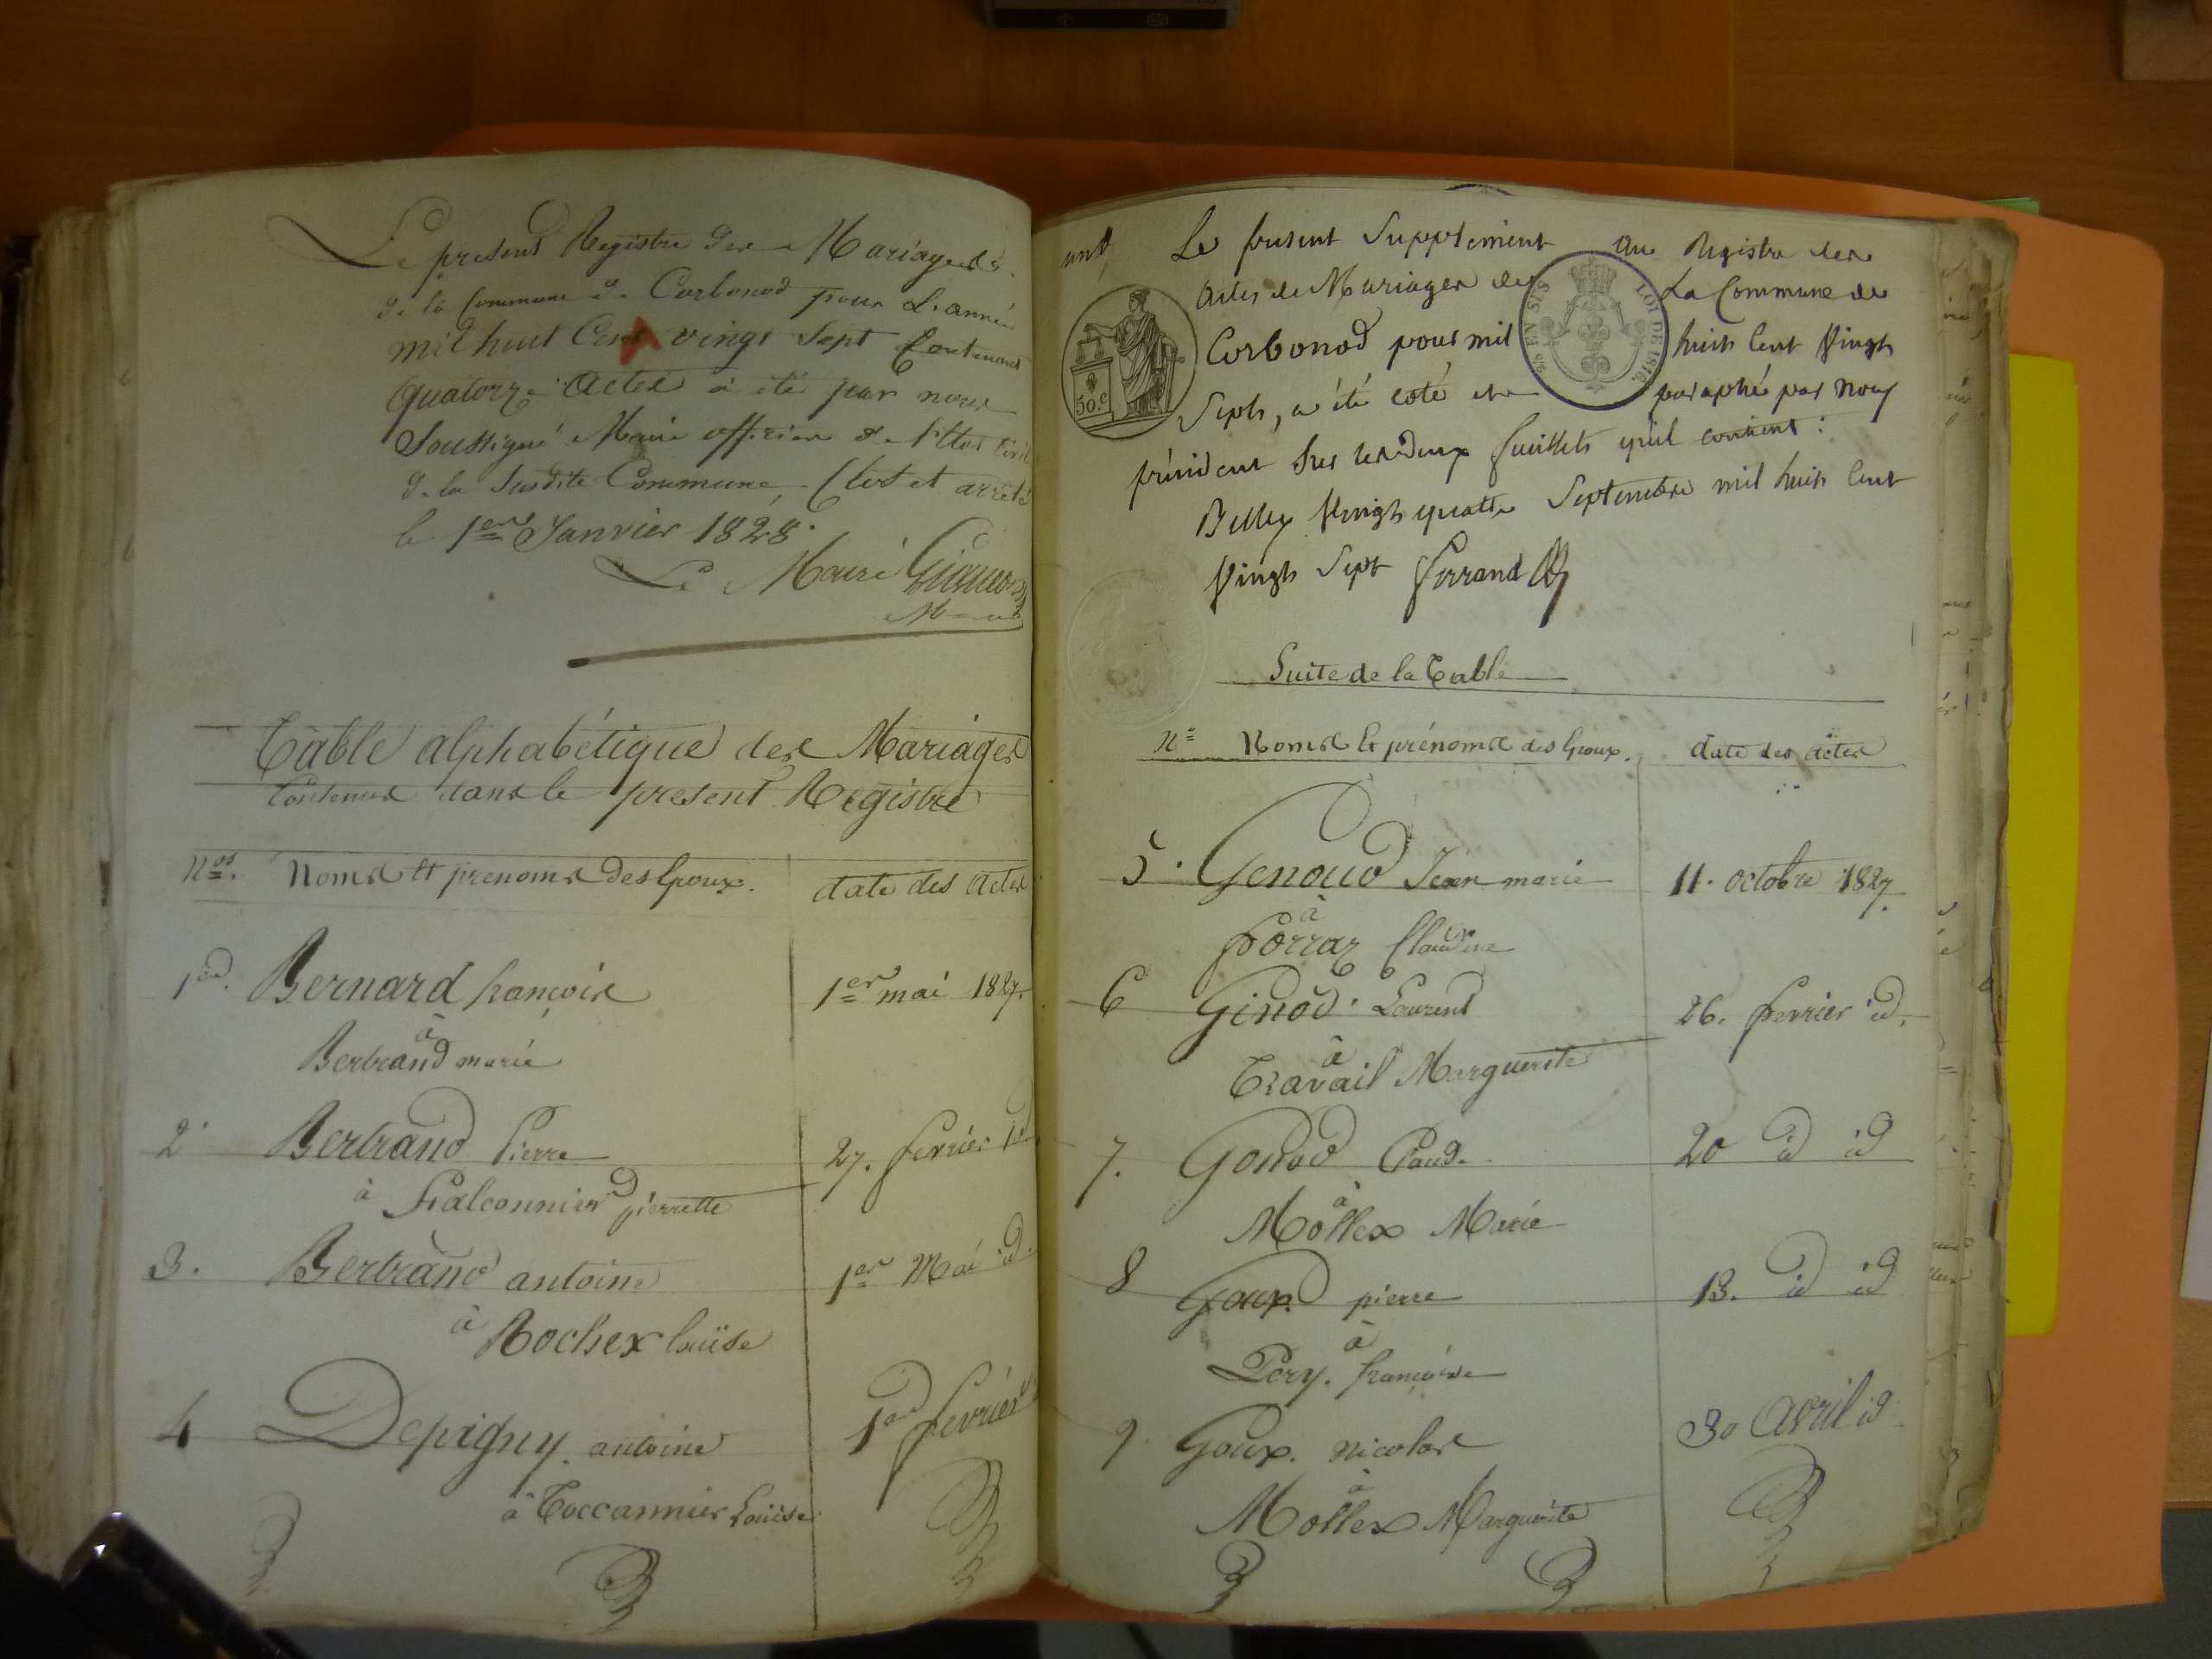 Le present Registre des Mariages
de la Commune de Corbonod pour L'année
mil huit Cent vingt Sept Contenant
quatorze actes a été par nous
Soussigné Maire officier de l'Etat Civil
de la Susdite Commune, Clos et arrêté
le 1er Janvier 1828.
Le Maire
Table alphabétique des Mariages
Contenus dans le présent Registre
Nos. Noms et prenoms des Epoux. date des Actes
1er. Bernard françois 1er mai 1827.
à
Bertrand marie
2 Bertrand Pierre 27. fevrier id
à Falconnier pierrette
3. Bertrand antoine 1er Mai id.
à Rochex louise
4 Depigny antoine 1er fevrier
à Toccannier Louise
Le present Supplément au Registre des
Actes de Mariages de La Commune de
Corbonod pour mil huit Cent Vingt
Sept, a été coté et paraphé par Nous
président sur les deux feuillets qu'il contient :
Belley Vingt quatre Septembre mil huit Cent
Vingt Sept Ferrand
50.c
EN SUS
LOI DE 1816.
Suite de la Table
No Noms et prénoms des Epoux. date des actes
5. Genoud Jean marie 11. octobre 1827.
à
Forraz Claudine
6 Ginod. Laurent 26. fevrier id.
à
Travail Marguerite
7. Gonod Claude 20 id id
à
Mollex Marie
8 Goux. pierre 13. id id
à
Pery. françoise
9 Goux. nicolas 30 avril id
à
Mollex Marguerite